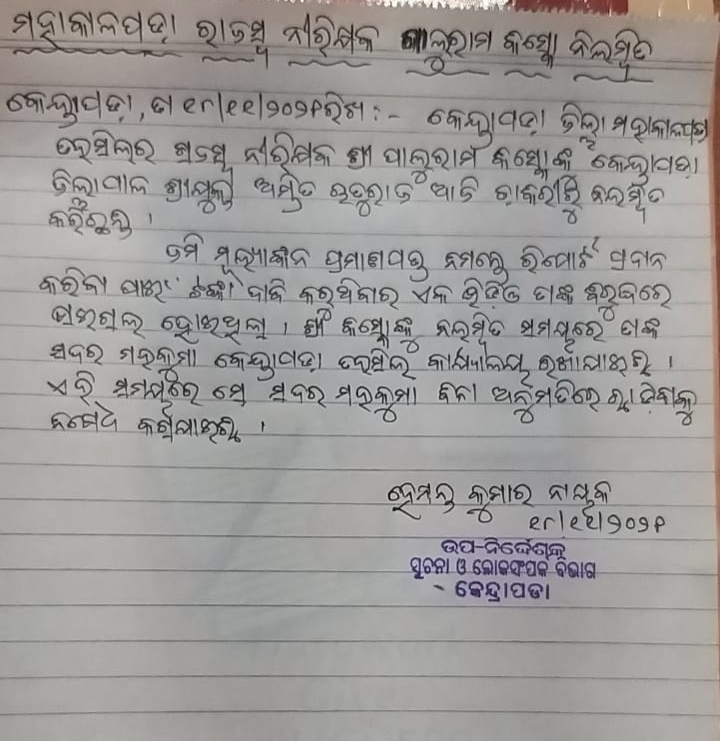 ମହାକାଳପଡ଼ା ରାଜସ୍ୱ ନୀରିକ୍ଷକ ପାଲୁରାମ ହାସ୍ଦା ନିଲମ୍ବିତ
କେନ୍ଦ୍ରାପଡ଼ା, ତା :- କେନ୍ଦ୍ରାପଡ଼ା ଜିଲ୍ଲା ମହାକାଳପଡ଼ା
ତହସିଲର ରାଜସ୍ୱ ନୀରିକ୍ଷକ ଶ୍ରୀ ପାଲୁରାମ କେନ୍ଦ୍ରାପଡ଼ା
ଜିଲାପାଳ ଶ୍ରୀଯୁକ୍ତ ଋତୁରାଜ ଆଜି ଚାକରୀରୁ ନିଲମ୍ବିତ
କରିଛନ୍ତି ।
ଜମି ମୂଲ୍ୟାଙ୍କନ ପ୍ରମାଣପତ୍ର ନିମନ୍ତେ ରିପୋର୍ଟ ପ୍ରଦାନ
କରିବା ପାଇଁ ଟଙ୍କା ଦାବି କରୁଥିବାର ଏକ ଭିଡ଼ିଓ ତାଙ୍କ ବିରୁଦ୍ଧରେ
ଭାଇରାଲ ହୋଇଥିଲା । ଶ୍ରୀ ନିଲମ୍ବିତ ସମୟରେ ତାଙ୍କ
ସଦର ମହକୁମା କେନ୍ଦ୍ରାପଡ଼ା ତହସିଲ କାର୍ଯ୍ୟାଳୟ ରଖାଯାଇଛି ।
ଏହି ସମୟରେ ସେ ସଦର ମହକୁମା ବିନା ଅନୁମତିରେ ଛାଡ଼ିବାକୁ
ନିଷେଧ କରାଯାଇଛି ।
ହେମନ୍ତ କୁମାର ନାୟକ
ଉପ-ନିର୍ଦ୍ଦେଶକ
ସୂଚନା ଓ ଲୋକସଂପର୍କ ବିଭାଗ
- କେନ୍ଦ୍ରାପଡା